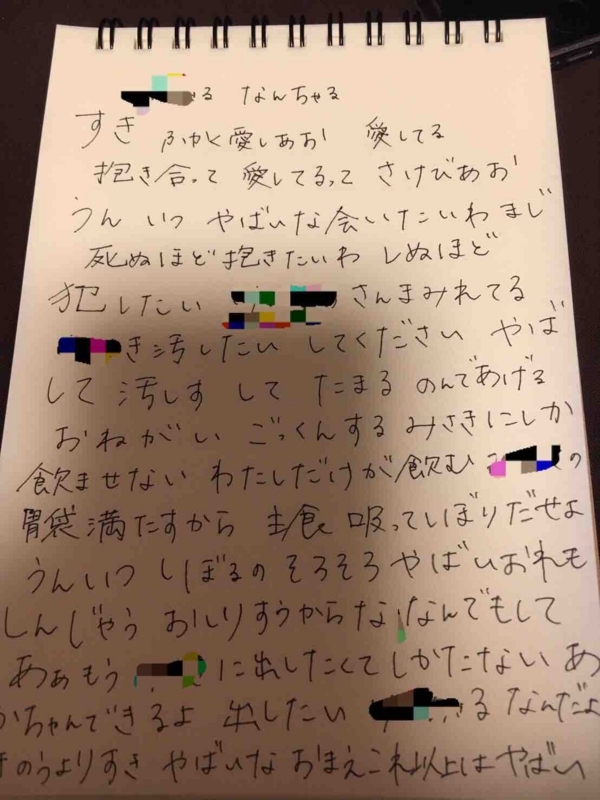 る なんちゃる
すき ふかく愛しあお 愛してる
抱き合って 愛してるって さけびあお
うん いつ やばいな会いたいわ まじ
死ぬほど抱きたいわ しぬほど
犯したい さんまみれてる
き汚したい してください やば
して 汚しす して たまる のんであげる
おねがい ごっくんする みさきにしか
飲ませない わたしだけが飲む の
胃袋満たすから 主食 吸ってしぼりだせよ
うんいつ しぼるの そろそろ やばいおれも
しんじゃう おしりすうからな なんでもして
あぁもう に出したくてしかたない あ
かちゃんできるよ 出したい きる なんだよ
きのうよりすき やばいな おまえこれ以上はやばい